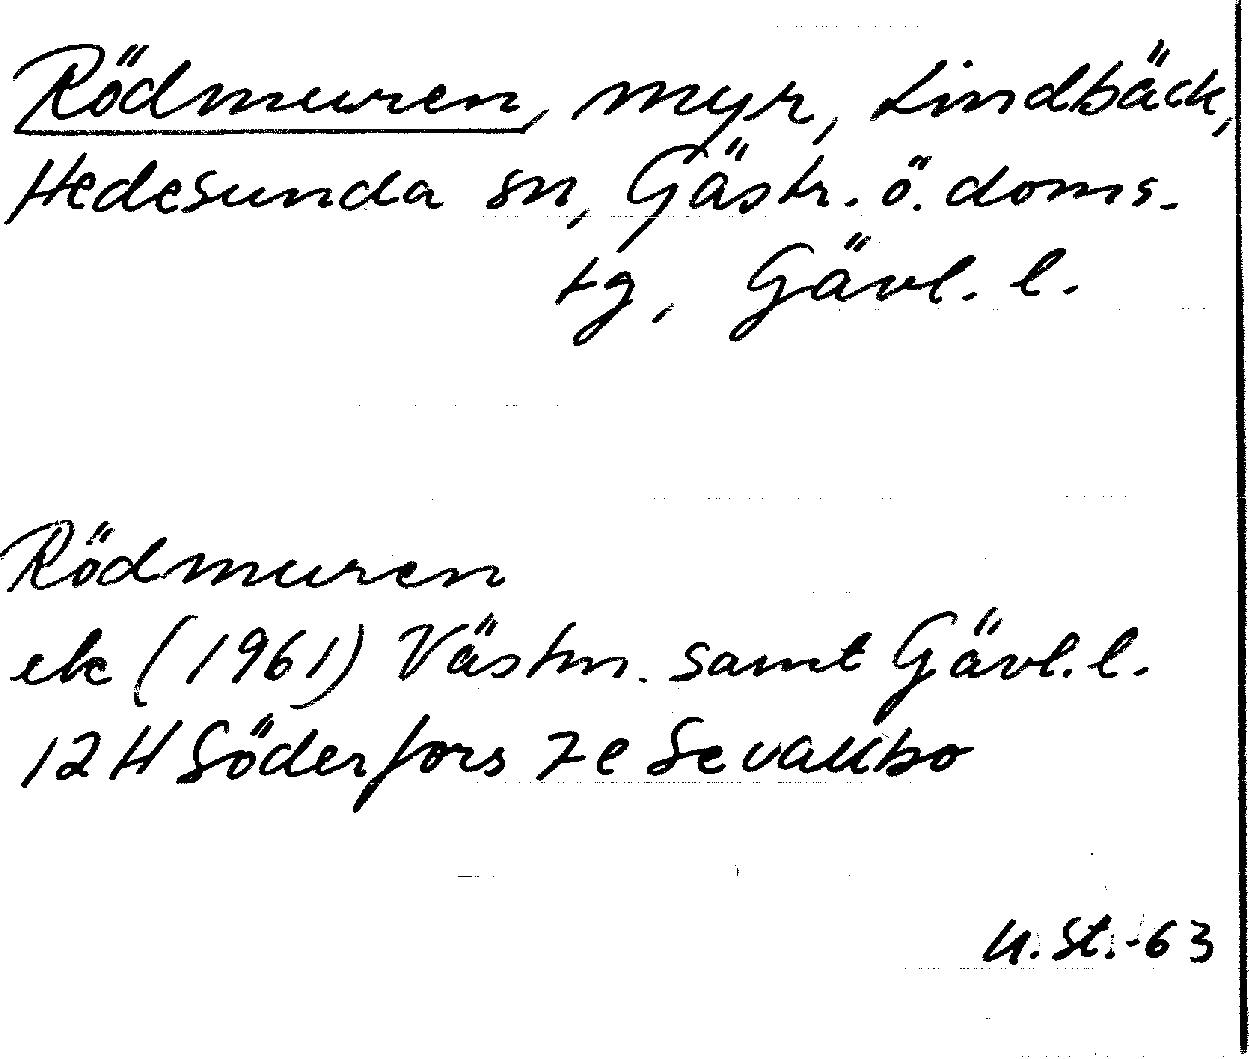 Rödmuren, myr, Lindbäck,
Hedesunda sn, Gästr. ö. doms-
tg, Gävl. l.
Rödmuren
ek (1961) Västm. samt Gävl. l.
12H Söderfors 7e Sevallbo
U. St. -63